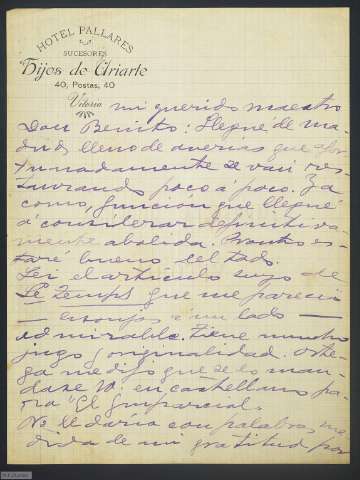 HOTEL PALLARES
SUCESORES
Hijos de Uriarte
40, Postas, 40
Vitoria
mi querido maestro
Don Benito: Llegué de Ma
drid lleno de averias que afor
tunadamente se van res
taurando poco á poco. Ya
como, función que llegué
á considerar definitiva
mente abolida. Pronto es
taré bueno del todo.
Leí el artículo suyo de
Le Temps que me pareció
á un lado
admirable. Tiene mucho
jugo y originalidad. Orte
ga me dijo que se lo man
dase V. en castellano pa
ra "El Imparcial.
No le daría con palabras me
dida de mi gratitud por